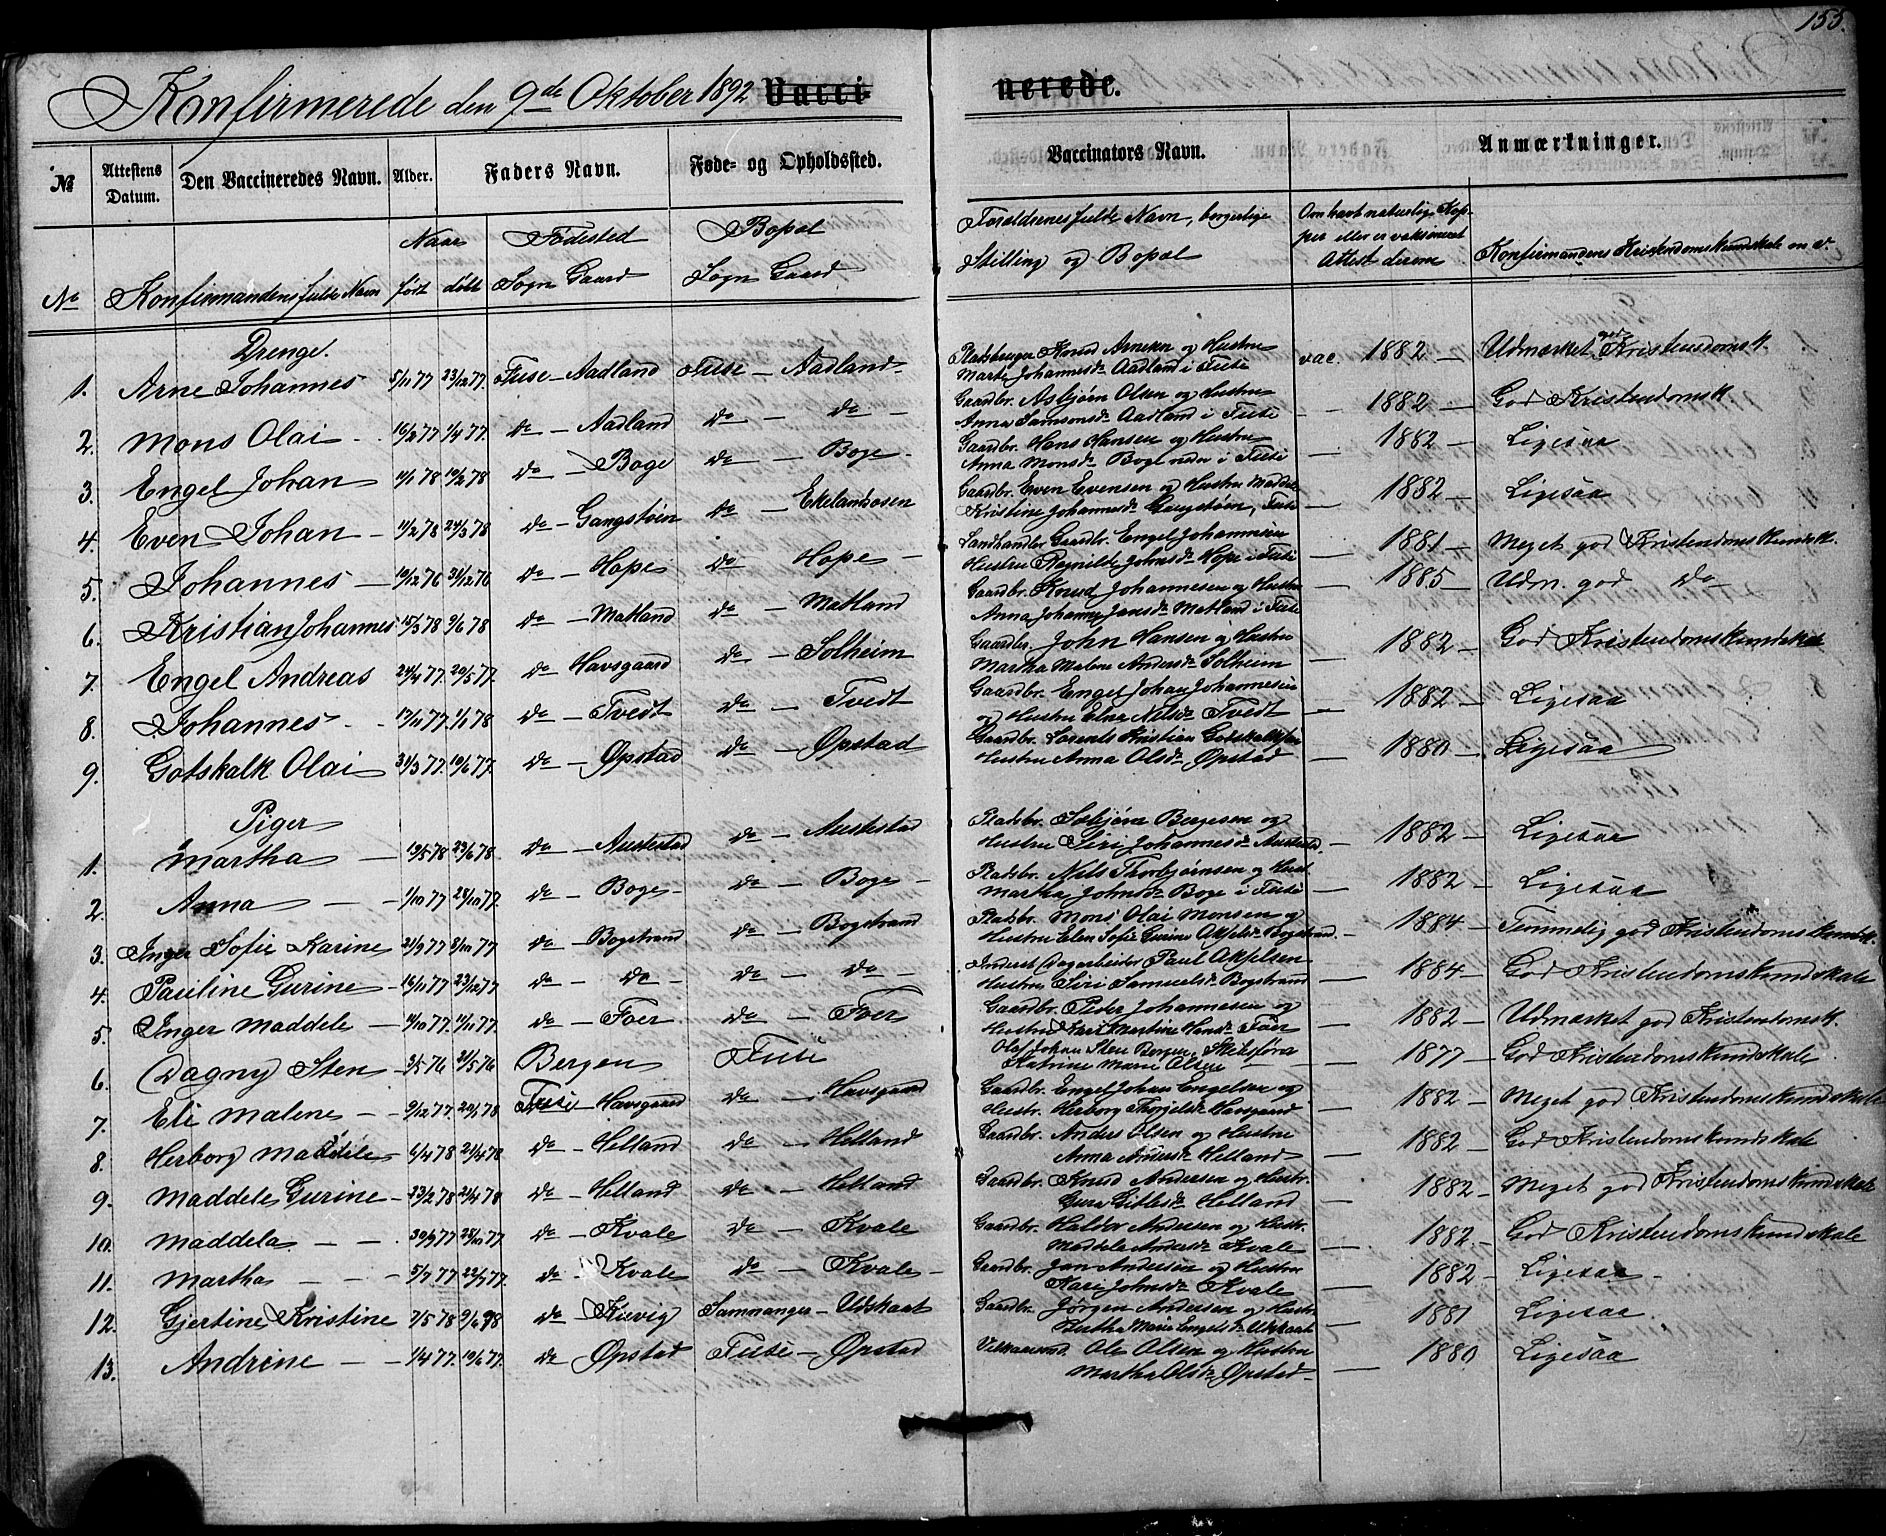 155.
Konfirmerede den 9de Oktober 1892 Vacci- nerede.
№ Attestens Datum. Den Vaccineredes Navn. Alder. Faders Navn. Føde- og Opholdssted. Vaccinators Navn. Anmærkninger.
No Konfirmandens fulde Navn Naar født døbt Fødested Sogn Gaard Bopæl Sogn Gaard Forældrenes fulde Navn, borgerlige Stilling og Bopæl Om havt naturlig Kopper eller er vaksineret Attest derom Konfirmandens Kristendomskundskab m. v.
Drenge.
1. Arne Johannes 5/11 77 23/12 77. Fuse - Aadland Fuse - Aadland - Pladsbruger Knud Arnesen og Hustru Marte Johannesdr Aadland i Fuse vac. 1882 - Udmærket god Kristendomsk.
2. Mons Olai - 16/2 77 1/4 77. do - Aadland do - do - Gaardbr. Asbjørn Olsen og Hustru Anna Samsonsdr Aadland i Fuse - - 1882 - God Kristendomsk.
3. Engel Johan 4/1 78 10/2 78 do - Boge do - Boge - Gaardbr. Hans Hansen og Hustru Anna Monsdr Boge nedre i Fuse - 1882 - Ligesaa
4. Even Johan - 14/2 78 24/3 78 do - Gangstøen do - Ekelandsosen Gaardbr. Even Evensen og Hustru Maddele Kristine Johannesdr Gangstøen, Fuse - 1882 - Ligesaa
5. Johannes - 10/12 76 24/12 76 do - Hope do - Hope - Landhandler Gaardbr. Engel Johannesen Hustru Ragnilde Johnsdr Hope i Fuse - 1881 - Meget god Kristendomskundsk.
6. Kristian Johannes 15/5 78 9/6 78 do - Matland do - Matland Gaardbr. Knud Johannesen og Hustru Anna Johanne Jansdr Matland i Fuse - 1885 - Udm. god do
7. Engel Andreas 24/4 77. 20/5 77. do - Havsgaard do - Solheim Gaardbr. John Hansen og Hustru Martha Malene Andersdr Solheim - 1882 - God Kristendomskundskab
8. Johannes - - 17/11 77. 1/1 78 do - Tvedt do - Tvedt Gaardbr. Engel Johan Johannesen og Hustru Elna Nilsdr Tvedt - 1882 - Ligesaa
9. Gotskalk Olai 31/3 77. 10/6 77. do - Øpstad do - Øpstad Gaardbr. Lorents Kristian Gotskalksen Hustru Anna Olsdr Øpstad - 1880 - Ligesaa
Piger
1. Martha - 19/5 78 23/6 78. do - Austestad do - Austestad Pladsbr. Sæbjørn Bergesen og Hustru Siri Johannesdr Austestad. - 1882 - Ligesaa
2. Anna - - 1/10 77 28/10 77. do - Boge - do - Boge - Pladsbr. Nils Thorbjørnsen og Hust. Martha Johnsdr Boge i Fuse - 1882 - Ligesaa
3. Inger Sofie Karine 21/9 77 8/10 77 do - Bogstrand do - Bogstrand Pladsbr. Mons Olai Monsen og Hustru Elen Sofie Gurine Akselsdr Bogstrand. - 1884 - Temmelig god Kristendomskundsk.
4. Pauline Gurine - 16/11 77 23/12 77 do - do - do - do - Inderst Dagarbeider Paul Akselsen Hustru Siri Samuelsdr Bogstrand - 1884 - God Kristendomskundskab
5. Inger Maddele - 14/10 77. 11/11 77. do - Foer - do - Foer Gaardbr. Peder Johannesen og Hustru Kari Martine Hansdr Foer - 1882 - Udmærket god Kristendomsk.
6. Dagny Sten 3/5 76 21/5 76 Bergen Fuse Olaf Johan Sten Bergen, Skibsfører Katrine Marie Olsen - 1877 - God Kristendomskundskab
7. Eli Malene - - 9/12 77. 20/1 78 Fuse - Havsgaard do - Havsgaard Gaardbr. Engel Johan Engelsen og Hustr. Herborg Thorjelsdr Havsgaard - 1882 - Meget god Kristendomskundskab
8. Herborg Maddele - 6/4 78 21/4 78 do - Helland do - Helland Gaardbr. Anders Olsen og Hustru Anna Andersdr Helland - 1882 - God Kristendomskundskab
9. Maddele Gurine - 23/2 78 21/4 78 do - Helland do - Helland Gaardbr. Knud Andersen og Hustr. Guro Gitlesdr Helland - 1882 - Meget god Kristendomskundskab
10. Maddela - - 30/9 77 28/10 77. do - Kvale do - Kvale Gaardbr. Haldor Andersen og Hustr. Maddela Andersdr Kvale - 1882 - God Kristendomskundskab
11. Martha - - 5/7 77 22/7 77. do - Kvale do - Kvale - Gaardbr. Jan Andersen og Hustru Kari Johnsdr Kvale - 1882 - Ligesaa -
12. Gjertine Kristine 7/5 78 9/6 78 do - Kilevig Samnanger - Udskaat Gaardbr. Jørgen Andersen og Hustru Bertha Marie Engelsdr Udskaat - 1881 Ligesaa
13. Andrine - - 1/4 77. 10/6 77. do - Øpstad Fuse - Øpstad Vilkaarsmd. Ole Olsen og Hustru Martha Olsdr Øpstad - - 1880 Ligesaa